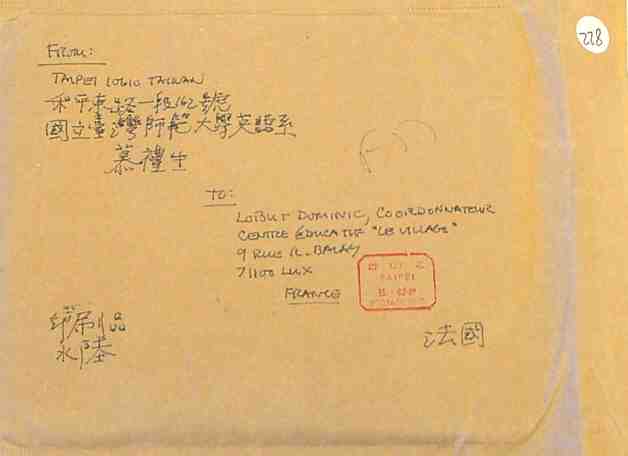 228
FROM:
TAIPEI 10610 TAIWAN
和平東路一段162號
國立臺灣師範大學英語系
慕禮生
TO:
DOMINIC, COORDONNATEUR
CENTRE ÉDUCATIF "LE VILLAGE"
9 RUE R.
71100 LUX
FRANCE
TAIPEI
法國
印刷品
水陸